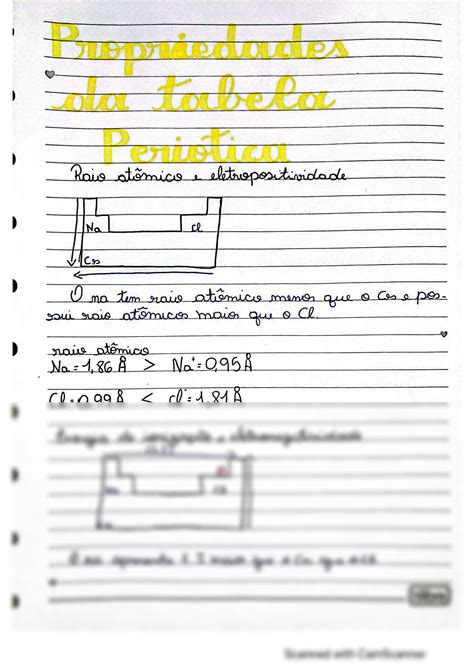 Propriedades
da tabela
Periótica
Raio atômico e eletropositividade
Na Cl
Cs
O na tem raio atômico menos que o Cs e pos-
sui raio atômicos maio que o Cl.
raio atômico
Na = 1,86 Å > Na⁺ = 0,95 Å
Cl = 0,99 Å < cl⁻ = 1,81 Å
Energia de ionização e eletronegatividade
Scanned with CamScanner